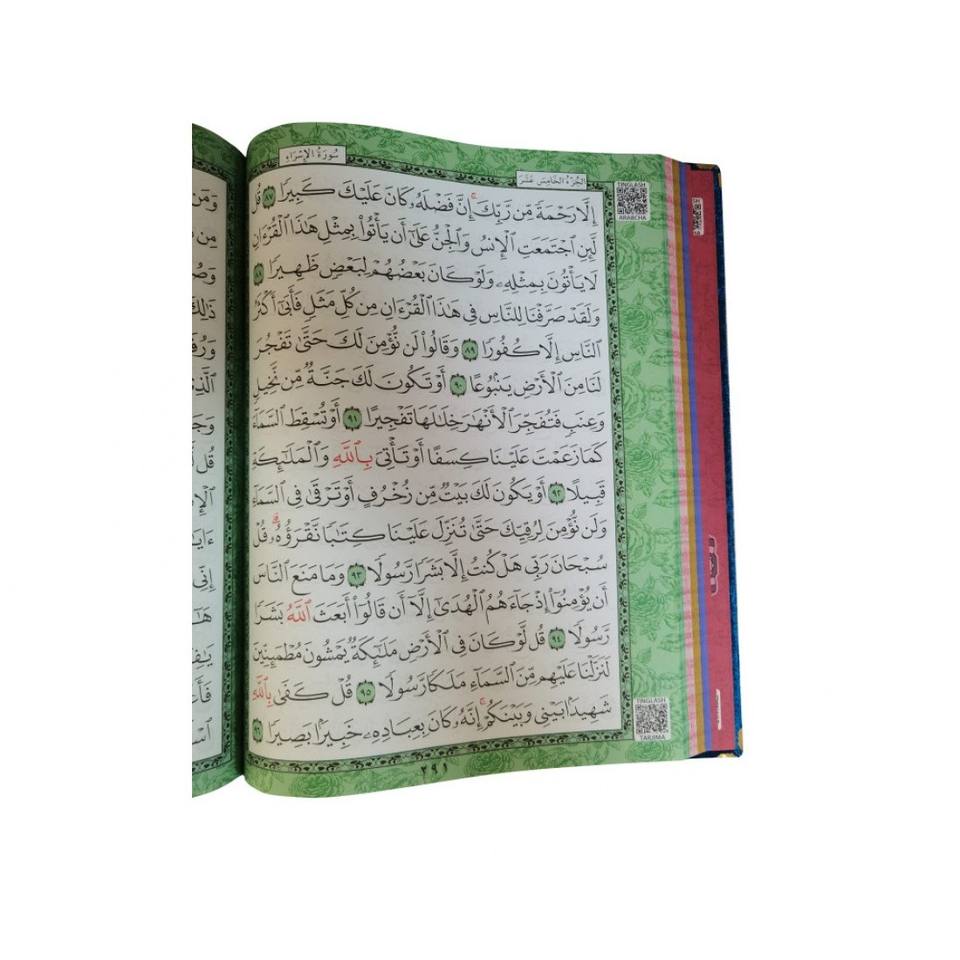 سُورَةُ الإِسْرَاءِ
الجُزْءُ الخَامِسَ عَشَرَ
إِلَّا رَحْمَةً مِّن رَّبِّكَ ۚ إِنَّ فَضْلَهُۥ كَانَ عَلَيْكَ كَبِيرًا ٨٧ قُل
لَّئِنِ ٱجْتَمَعَتِ ٱلْإِنسُ وَٱلْجِنُّ عَلَىٰٓ أَن يَأْتُوا۟ بِمِثْلِ هَٰذَا ٱلْقُرْءَانِ
لَا يَأْتُونَ بِمِثْلِهِۦ وَلَوْ كَانَ بَعْضُهُمْ لِبَعْضٍ ظَهِيرًا ٨٨
وَلَقَدْ صَرَّفْنَا لِلنَّاسِ فِى هَٰذَا ٱلْقُرْءَانِ مِن كُلِّ مَثَلٍ فَأَبَىٰٓ أَكْثَرُ
ٱلنَّاسِ إِلَّا كُفُورًا ٨٩ وَقَالُوا۟ لَن نُّؤْمِنَ لَكَ حَتَّىٰ تَفْجُرَ
لَنَا مِنَ ٱلْأَرْضِ يَنۢبُوعًا ٩٠ أَوْ تَكُونَ لَكَ جَنَّةٌ مِّن نَّخِيلٍ
وَعِنَبٍ فَتُفَجِّرَ ٱلْأَنْهَٰرَ خِلَٰلَهَا تَفْجِيرًا ٩١ أَوْ تُسْقِطَ ٱلسَّمَآءَ
كَمَا زَعَمْتَ عَلَيْنَا كِسَفًا أَوْ تَأْتِىَ بِٱللَّهِ وَٱلْمَلَٰٓئِكَةِ
قَبِيلًا ٩٢ أَوْ يَكُونَ لَكَ بَيْتٌ مِّن زُخْرُفٍ أَوْ تَرْقَىٰ فِى ٱلسَّمَآءِ
وَلَن نُّؤْمِنَ لِرُقِيِّكَ حَتَّىٰ تُنَزِّلَ عَلَيْنَا كِتَٰبًا نَّقْرَؤُهُۥ ۗ قُلْ
سُبْحَانَ رَبِّى هَلْ كُنتُ إِلَّا بَشَرًا رَّسُولًا ٩٣ وَمَا مَنَعَ ٱلنَّاسَ
أَن يُؤْمِنُوٓا۟ إِذْ جَآءَهُمُ ٱلْهُدَىٰٓ إِلَّآ أَن قَالُوٓا۟ أَبَعَثَ ٱللَّهُ بَشَرًا
رَّسُولًا ٩٤ قُل لَّوْ كَانَ فِى ٱلْأَرْضِ مَلَٰٓئِكَةٌ يَمْشُونَ مُطْمَئِنِّينَ
لَنَزَّلْنَا عَلَيْهِم مِّنَ ٱلسَّمَآءِ مَلَكًا رَّسُولًا ٩٥ قُلْ كَفَىٰ بِٱللَّهِ
شَهِيدًۢا بَيْنِى وَبَيْنَكُمْ ۚ إِنَّهُۥ كَانَ بِعِبَادِهِۦ خَبِيرًۢا بَصِيرًا ٩٦
٢٩١
TINGLASH
ARABCHA
TINGLASH
TARJIMA